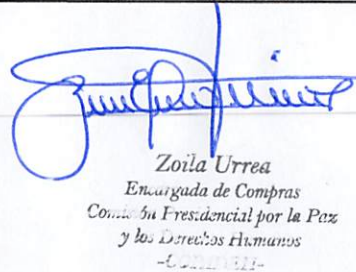 Zoila Urrea
Encargada de Compras
Comisión Presidencial por la Paz
y los Derechos Humanos